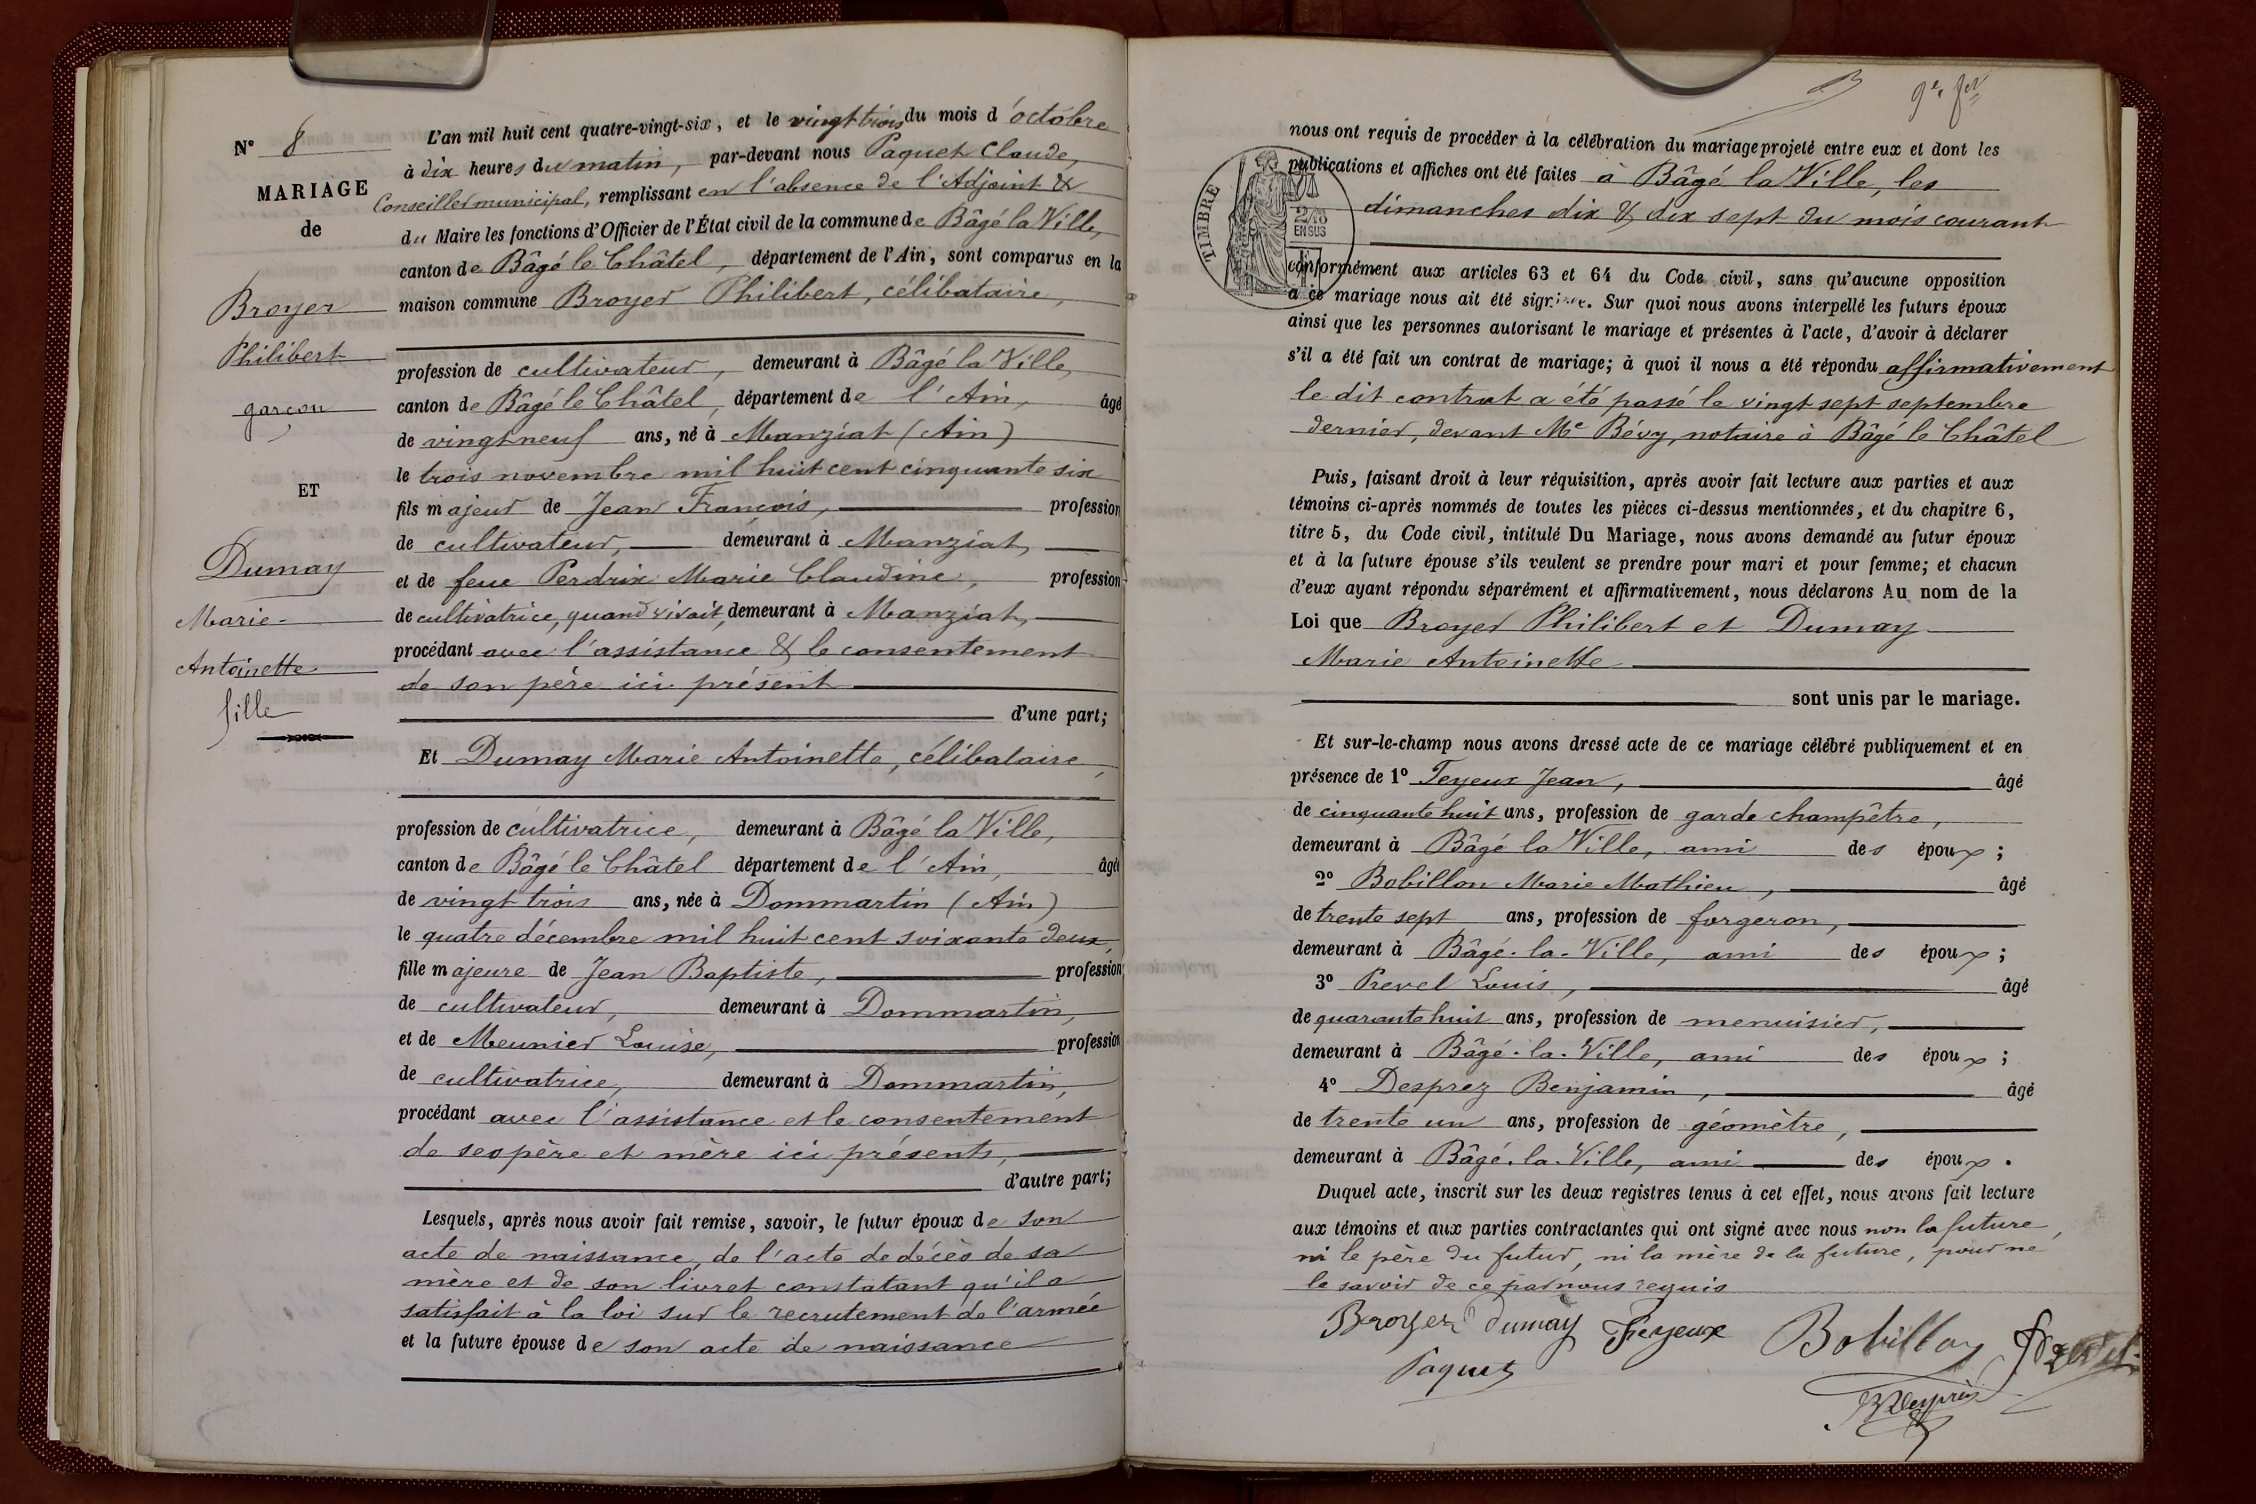 N° 8
MARIAGE
de
Broyer
Philibert
garçon
ET
Dumay
Marie-
Antoinette
fille
L'an mil huit cent quatre-vingt-six, et le vingt trois du mois d'octobre
à dix heures du matin, par-devant nous Paquet Claude,
Conseiller municipal, remplissant en l'absence de l'Adjoint &
du Maire les fonctions d'Officier de l'État civil de la commune de Bâgé la Ville,
canton de Bâgé le Châtel, département de l'Ain, sont comparus en la
maison commune Broyer Philibert, célibataire,
profession de cultivateur, demeurant à Bâgé la Ville,
canton de Bâgé le Châtel, département de l'Ain, âgé
de vingt neuf ans, né à Manziat (Ain)
le trois novembre mil huit cent cinquante six
fils majeur de Jean François, profession
de cultivateur, demeurant à Manziat,
et de feue Perdrix Marie Claudine, profession
de cultivatrice, quand vivait, demeurant à Manziat,
procédant avec l'assistance & le consentement
de son père ici présent
d'une part;
Et Dumay Marie Antoinette, célibataire,
profession de cultivatrice, demeurant à Bâgé la Ville,
canton de Bâgé le Châtel département de l'Ain, âgée
de vingt trois ans, née à Dommartin (Ain)
le quatre décembre mil huit cent soixante deux,
fille majeure de Jean Baptiste, profession
de cultivateur, demeurant à Dommartin,
et de Meunier Louise, profession
de cultivatrice, demeurant à Dommartin,
procédant avec l'assistance et le consentement
de ses père et mère ici présents,
d'autre part;
Lesquels, après nous avoir fait remise, savoir, le futur époux de son
acte de naissance, de l'acte de décès de sa
mère et de son livret constatant qu'il a
satisfait à la loi sur le recrutement de l'armée
et la future épouse de son acte de naissance
nous ont requis de procéder à la célébration du mariage projeté entre eux et dont les
publications et affiches ont été faites à Bâgé la Ville, les
dimanches dix & dix sept du mois courant
TIMBRE
conformément aux articles 63 et 64 du Code civil, sans qu'aucune opposition
à ce mariage nous ait été signifiée. Sur quoi nous avons interpellé les futurs époux
ainsi que les personnes autorisant le mariage et présentes à l'acte, d'avoir à déclarer
s'il a été fait un contrat de mariage; à quoi il nous a été répondu affirmativement
le dit contrat a été passé le vingt sept septembre
dernier, devant Me Bévy, notaire à Bâgé le Châtel
Puis, faisant droit à leur réquisition, après avoir fait lecture aux parties et aux
témoins ci-après nommés de toutes les pièces ci-dessus mentionnées, et du chapitre 6,
titre 5, du Code civil, intitulé Du Mariage, nous avons demandé au futur époux
et à la future épouse s'ils veulent se prendre pour mari et pour femme; et chacun
d'eux ayant répondu séparément et affirmativement, nous déclarons Au nom de la
Loi que Broyer Philibert et Dumay
Marie Antoinette
sont unis par le mariage.
Et sur-le-champ nous avons dressé acte de ce mariage célébré publiquement et en
présence de 1° Teyeux Jean, âgé
de cinquante huit ans, profession de garde champêtre,
demeurant à Bâgé la Ville, ami des époux;
2° Bobillon Marie Mathieu, âgé
de trente sept ans, profession de forgeron,
demeurant à Bâgé-la-Ville, ami des époux;
3° Prevel Louis, âgé
de quarante huit ans, profession de menuisier,
demeurant à Bâgé-la-Ville, ami des époux;
4° Desprez Benjamin, âgé
de trente un ans, profession de géomètre,
demeurant à Bâgé-la-Ville, ami des époux.
Duquel acte, inscrit sur les deux registres tenus à cet effet, nous avons fait lecture
aux témoins et aux parties contractantes qui ont signé avec nous non la future,
ni le père du futur, ni la mère de la future, pour ne
le savoir de ce par nous requis
Broyer Dumay Teyeux Bobillon
Paquet